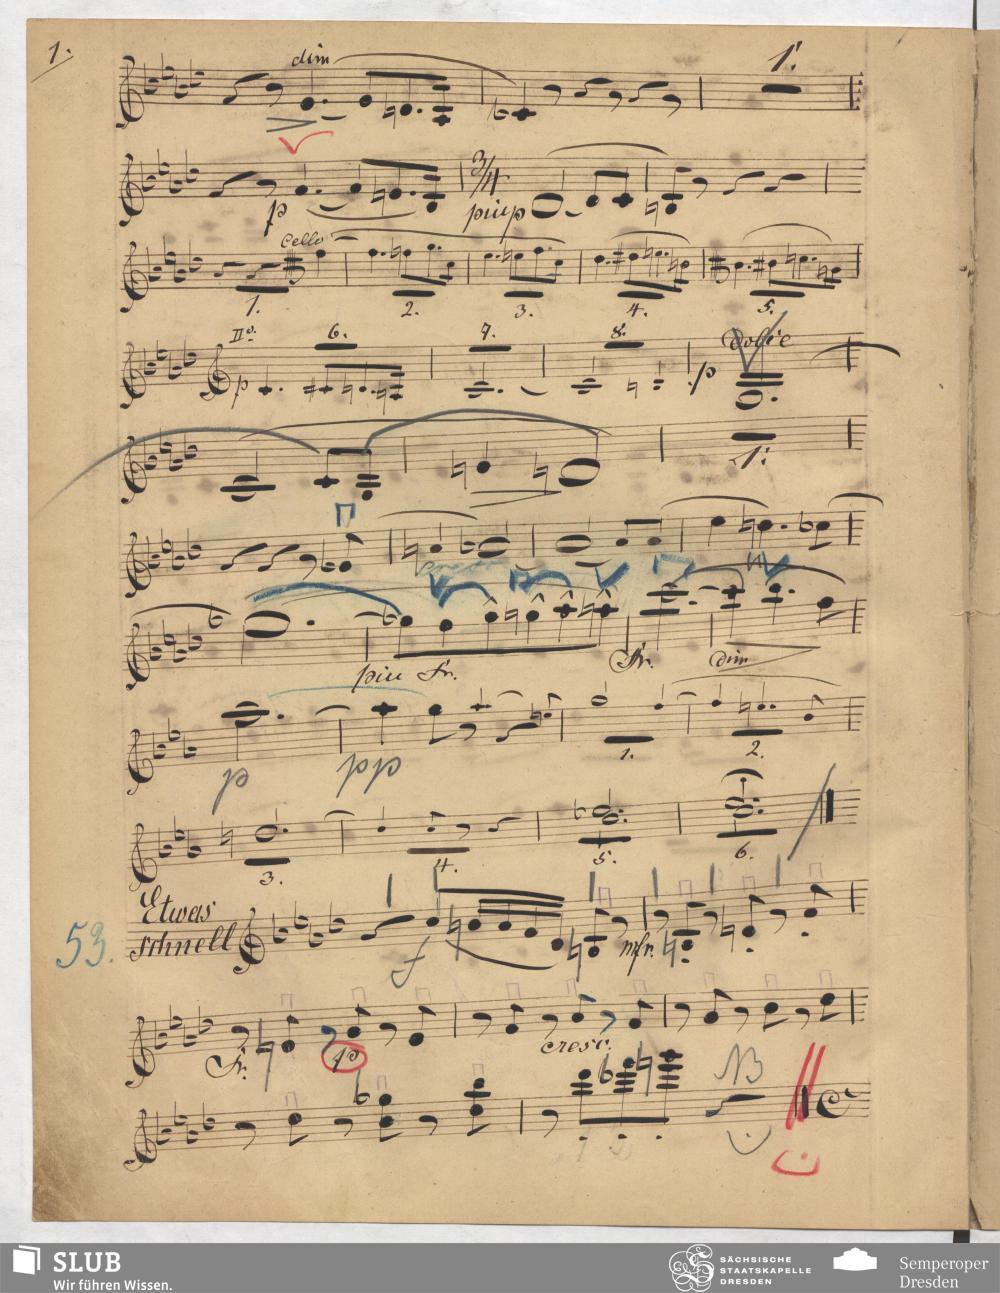 1.
dim
1.
p
3/4
piu p
Cello
1. 2. 3. 4. 5.
IIº. 6. 7. 8. dolce
p p
1.
cresc
piu Fr. Fr. dim
p pp 1. 2.
3. 4. 5. 6.
Etwas
schnell
53.
f mfr.
Fr. p cresc.
NB
SLUB
Wir führen Wissen.
SÄCHSISCHE
STAATSKAPELLE
DRESDEN
Semperoper
Dresden